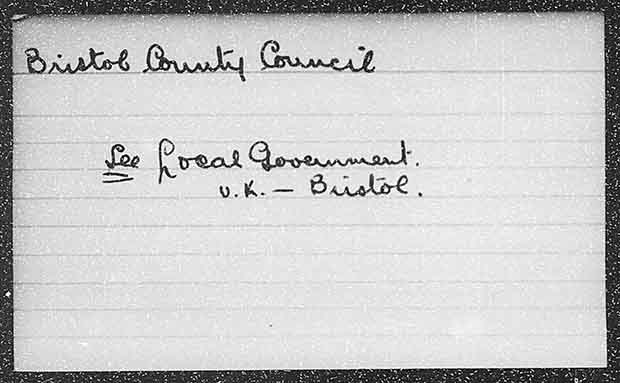 Bristol County Council
See Local Government.
U.K. — Bristol.